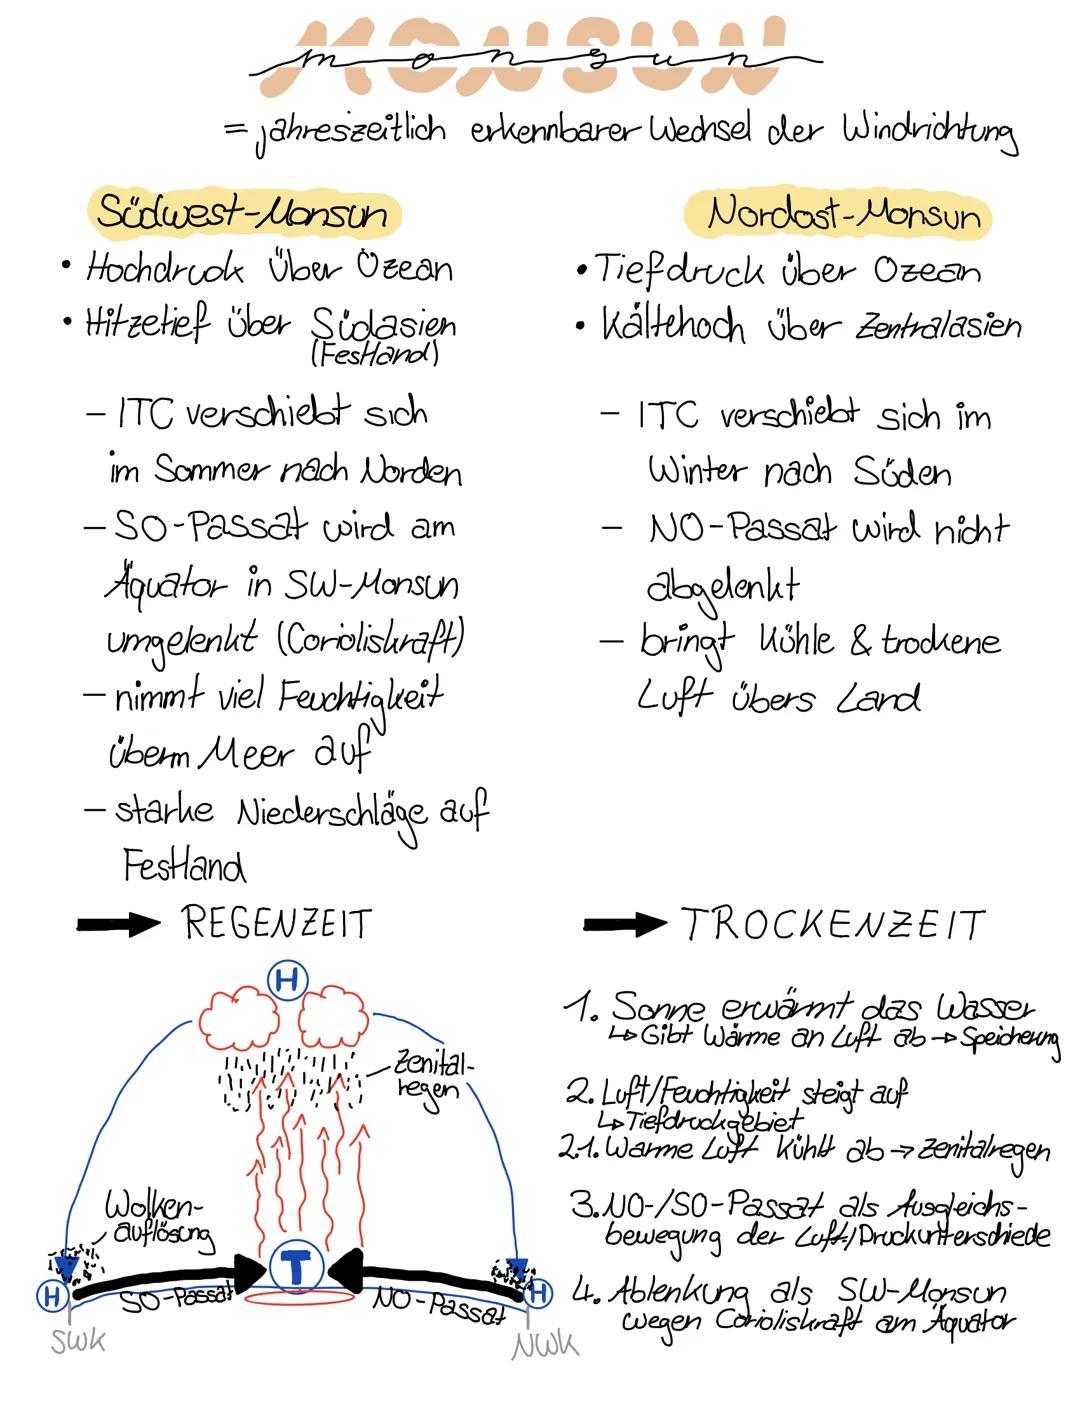 MONSUN
monsun
= jahreszeitlich erkennbarer Wechsel der Windrichtung
Südwest-Monsun
• Hochdruck Über Ozean
• Hitzetief über Südasien
(Festland)
- ITC verschiebt sich
im Sommer nach Norden
- SO-Passat wird am
Äquator in SW-Monsun
umgelenkt (Corioliskraft)
- nimmt viel Feuchtigkeit
überm Meer auf
- starke Niederschläge auf
Festland
→ REGENZEIT
Nordost-Monsun
• Tiefdruck über Ozean
• Kältehoch über Zentralasien
- ITC verschiebt sich im
Winter nach Süden
- NO-Passat wird nicht
abgelenkt
- bringt kühle & trockene
Luft übers Land
→ TROCKENZEIT
H
Zenital-
regen
Wolken-
auflösung
H
SO-Passat
T
NO-Passat
H
SWK
NWK
1. Sonne erwärmt das Wasser
↳ Gibt Wärme an Luft ab → Speicherung
2. Luft/Feuchtigkeit steigt auf
↳ Tiefdruckgebiet
2.1. Warme Luft kühlt ab → Zenitalregen
3. NO-/SO-Passat als Ausgleichs-
bewegung der Luft/Druckunterschiede
4. Ablenkung als SW-Monsun
wegen Corioliskraft am Äquator